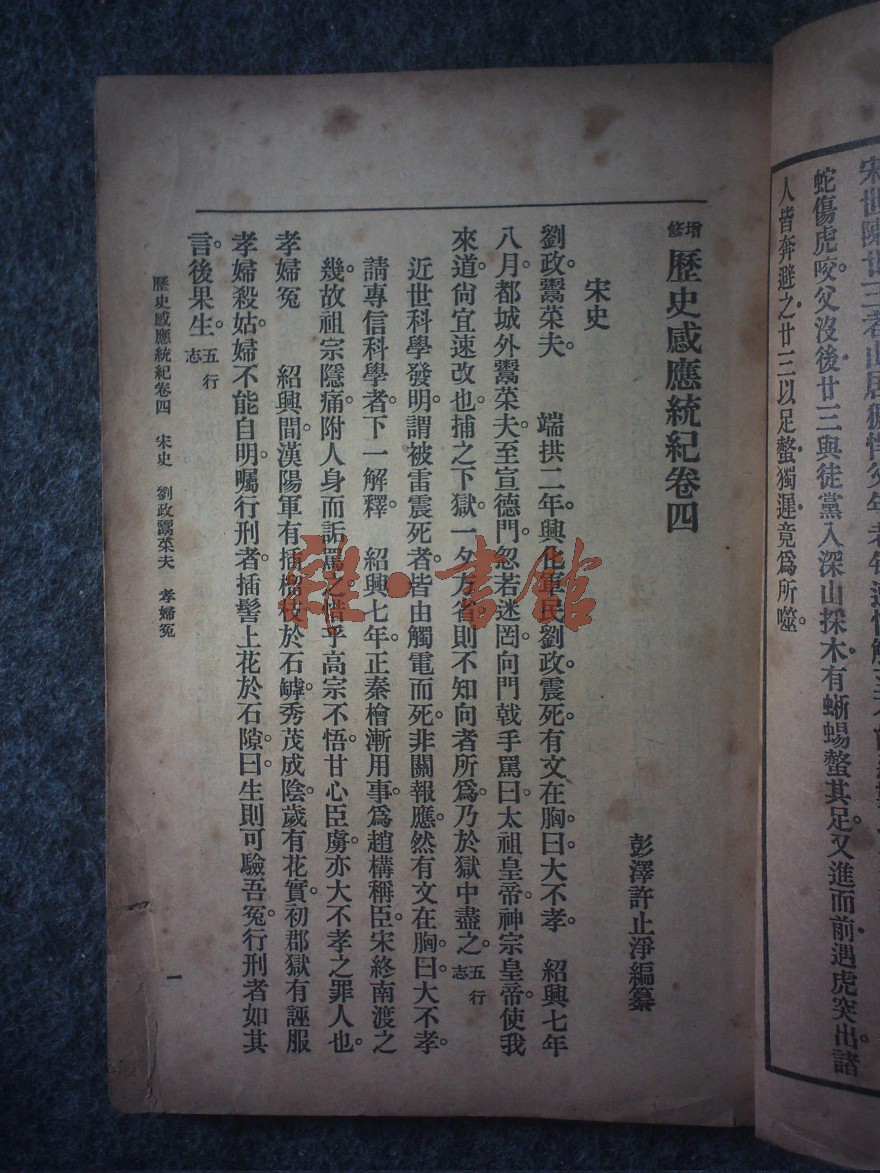 增修 歷史感應統紀卷四
彭澤許止淨編纂
宋史
劉政鬻菜夫。 端拱二年。興化軍民劉政。震死。有文在胸。曰大不孝。 紹興七年
八月。都城外鬻菜夫。至宣德門。忽若迷罔。向門戟手罵曰。太祖皇帝。神宗皇帝。使我
來道。尙宜速改也。捕之下獄。一夕方省。則不知向者所爲。乃於獄中盡之。五行志
近世科學發明。謂被雷震死者。皆由觸電而死。非關報應。然有文在胸。曰大不孝。
請專信科學者。下一解釋。 紹興七年。正秦檜漸用事。爲趙構稱臣。宋終南渡之
幾。故祖宗隱痛。附人身而詬罵之。惜乎高宗不悟。甘心臣虜。亦大不孝之罪人也。
孝婦冤 紹興間。漢陽軍有插榴枝於石罅。秀茂成陰。歲有花實。初郡獄有誣服
孝婦殺姑。婦不能自明。囑行刑者。插髻上花於石隙。曰。生則可驗吾冤。行刑者如其
言。後果生。五行志
歷史感應統紀卷四 宋史 劉政鬻菜夫 孝婦冤
一
蛇傷虎咬。父沒後。廿三與徒黨入深山採木。有蜥蜴螫其足。又進而前。遇虎突出。諸
人皆奔避之。廿三以足螫獨遲。竟爲所噬。
雜·書館